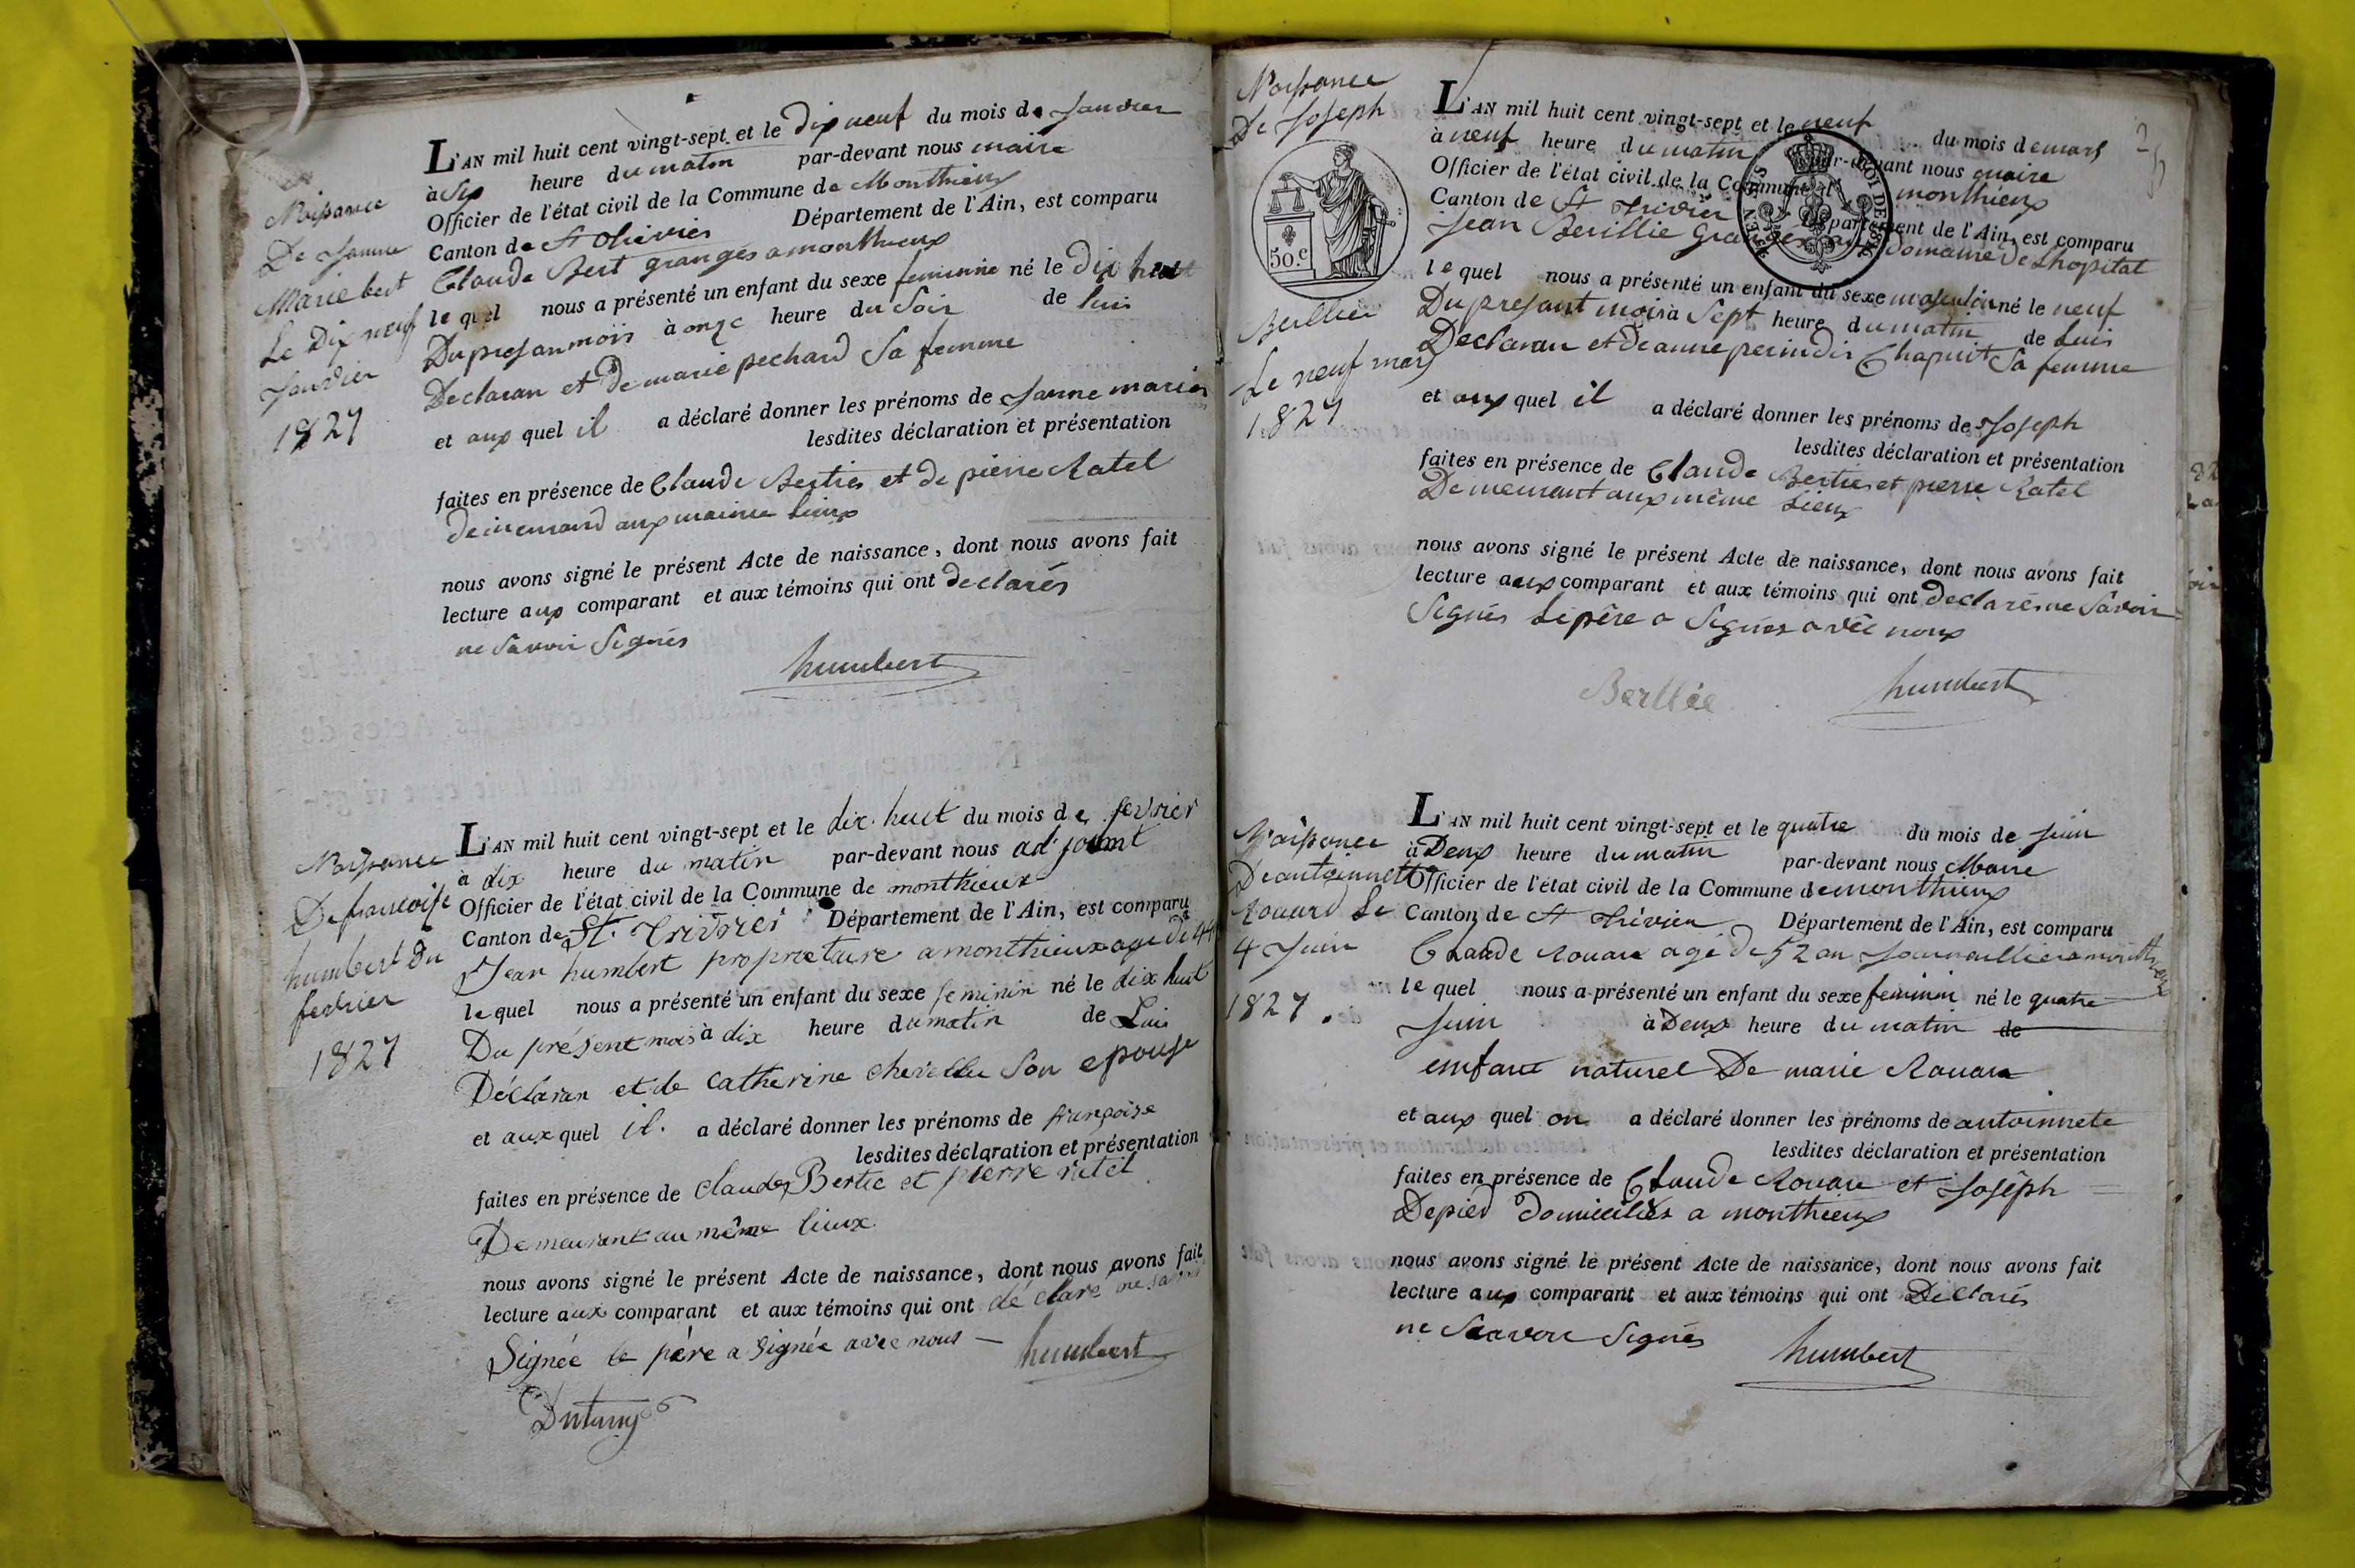 Naissance
De Janne
Marie bert
Le Dix neuf
Janvier
1827
L'AN mil huit cent vingt-sept et le Dix neuf du mois de Janvier
à Six heure du matin par-devant nous maire
Officier de l'état civil de la Commune de Monthieux
Canton de St Trivier Département de l'Ain, est comparu
Claude Bert granges a monthieux
le quel nous a présenté un enfant du sexe feminine né le Dix huit
Du presan mois à onze heure du Soir de lui
Declaran et De marie pechard Sa femme
et aux quel il a déclaré donner les prénoms de Janne marie
lesdites déclaration et présentation
faites en présence de Claude Bertie et de pierre Ratel
nous avons signé le présent Acte de naissance, dont nous avons fait
lecture aux comparant et aux témoins qui ont declarés
ne Savoir Signés
humbert
Naissance
De francoise
humbert du
fevrier
1827
L'AN mil huit cent vingt-sept et le dix huit du mois de fevrier
à dix heure du matin par-devant nous adjoint
Officier de l'état civil de la Commune de monthieux
Canton de St. Trivier Département de l'Ain, est comparu
Jean humbert proprietaire a monthieux age de 44
le quel nous a présenté un enfant du sexe feminin né le dix huit
Du présent mois à dix heure du matin de Lui
Déclaran et de Catherine Son epouse
et aux quel il. a déclaré donner les prénoms de françoise
lesdites déclaration et présentation
faites en présence de Claude Bertie et pierre ratel
Demeurent au même lieux
nous avons signé le présent Acte de naissance, dont nous avons fait
lecture aux comparant et aux témoins qui ont déclaré ne savoir
Signée le père a Signée avec nous — humbert
Naissance
De Joseph
50.c
Berllie
Le neuf mars
1827
L'AN mil huit cent vingt-sept et le neuf du mois de mars
à neuf heure du matin par-devant nous maire
Officier de l'état civil de la Commune de monthieux
Canton de St Trivier Département de l'Ain, est comparu
Jean Berllie Granger au Domaine de Lhopital
le quel nous a présenté un enfant du sexe masculin né le neuf
Du presant mois à Sept heure du matin de Lui
Declaran et de anne perin dis Chapuit Sa femme
et aux quel il a déclaré donner les prénoms de Joseph
lesdites déclaration et présentation
faites en présence de Claude Bertie et pierre Ratel
Demeurant aux même Lieux
nous avons signé le présent Acte de naissance, dont nous avons fait
lecture aux comparant et aux témoins qui ont declaré ne Savoir
Signés Le père a Signés avec nous
Berllie humbert
Naissance
De antoinnette
Rouard Le
4 Juin
1827.
L'AN mil huit cent vingt-sept et le quatre du mois de Juin
à Deux heure du matin par-devant nous Maire
Officier de l'état civil de la Commune de monthieux
Canton de St Trivier Département de l'Ain, est comparu
Claude Rouare age De 52 an Journallier a monthieux
le quel nous a présenté un enfant du sexe feminin né le quatre
Juin à Deux heure du matin de
emfant naturel De marie Rouare
et aux quel on a déclaré donner les prénoms de antoinnete
lesdites déclaration et présentation
faites en présence de Claude Rouare et Joseph
Depied Domicilies a monthieux
nous avons signé le présent Acte de naissance, dont nous avons fait
lecture aux comparant et aux témoins qui ont Declarés
ne Scavoir Signés
humbert